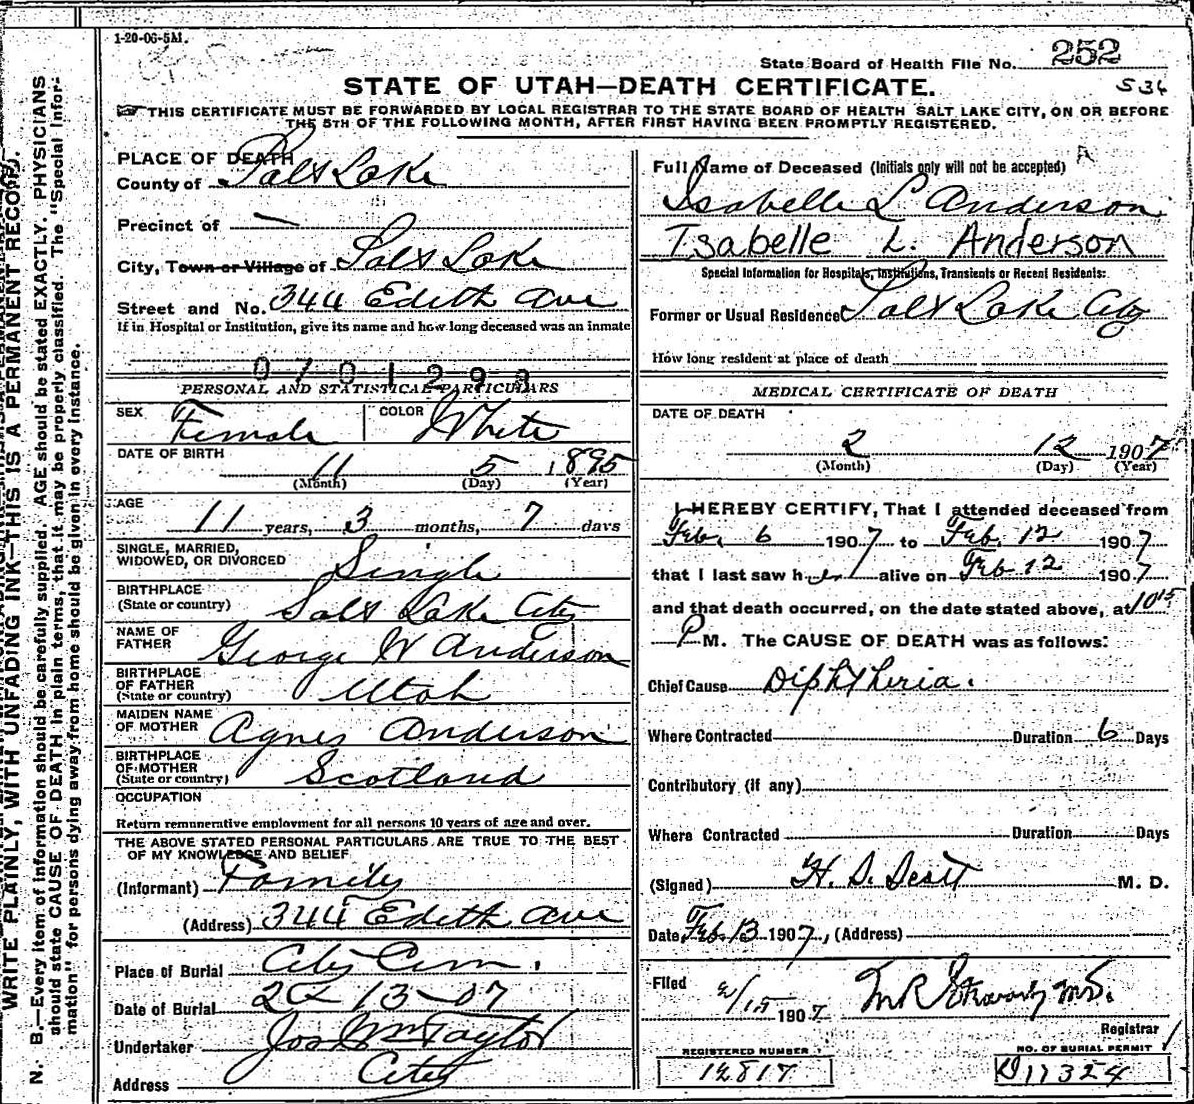 1-20-06-5M.
State Board of Health File No. 252
S 36
STATE OF UTAH—DEATH CERTIFICATE.
THIS CERTIFICATE MUST BE FORWARDED BY LOCAL REGISTRAR TO THE STATE BOARD OF HEALTH SALT LAKE CITY, ON OR BEFORE
THE 5TH OF THE FOLLOWING MONTH, AFTER FIRST HAVING BEEN PROMPTLY REGISTERED.
WRITE PLAINLY, WITH UNFADING INK—THIS IS A PERMANENT RECORD.
N. B.—Every item of information should be carefully supplied. AGE should be stated EXACTLY. PHYSICIANS
should state CAUSE OF DEATH in plain terms, that it may be properly classified. The "Special Infor-
mation" for persons dying away from home should be given in every instance.
PLACE OF DEATH
County of Salt Lake
Precinct of —
City, Town or Village of Salt Lake
Street and No. 344 Edith Ave
If in Hospital or Institution, give its name and how long deceased was an inmate
0701293
PERSONAL AND STATISTICAL PARTICULARS
SEX Female COLOR White
DATE OF BIRTH 11 5 1895
(Month) (Day) (Year)
AGE
11 years, 3 months, 7 days
SINGLE, MARRIED,
WIDOWED, OR DIVORCED Single
BIRTHPLACE
(State or country) Salt Lake City
NAME OF
FATHER George W Anderson
BIRTHPLACE
OF FATHER
(State or country) Utah
MAIDEN NAME
OF MOTHER Agnes Anderson
BIRTHPLACE
OF MOTHER
(State or country) Scotland
OCCUPATION
Return remunerative employment for all persons 10 years of age and over.
THE ABOVE STATED PERSONAL PARTICULARS ARE TRUE TO THE BEST
OF MY KNOWLEDGE AND BELIEF
(Informant) Family
(Address) 344 Edith Ave
Place of Burial City Cem.
Date of Burial 2 - 13 - 07
Undertaker Jos Wm Taylor
Address City
Full Name of Deceased (Initials only will not be accepted)
Isabelle L Anderson
Isabelle L. Anderson
Special Information for Hospitals, Institutions, Transients or Recent Residents:
Former or Usual Residence Salt Lake City
How long resident at place of death
MEDICAL CERTIFICATE OF DEATH
DATE OF DEATH
2 12 1907
(Month) (Day) (Year)
I HEREBY CERTIFY, That I attended deceased from
Feb. 6 1907 to Feb. 12 1907
that I last saw her alive on Feb 12 1907
and that death occurred, on the date stated above, at 10 15
P M. The CAUSE OF DEATH was as follows:
Chief Cause Diphtheria.
Where Contracted Duration 6 Days
Contributory (if any)
Where Contracted Duration Days
(Signed) H. D. M. D.
Date Feb. 13 1907, (Address)
Filed 2/15 1907 M.D.
Registrar
REGISTERED NUMBER
12817
NO. OF BURIAL PERMIT
D 11324